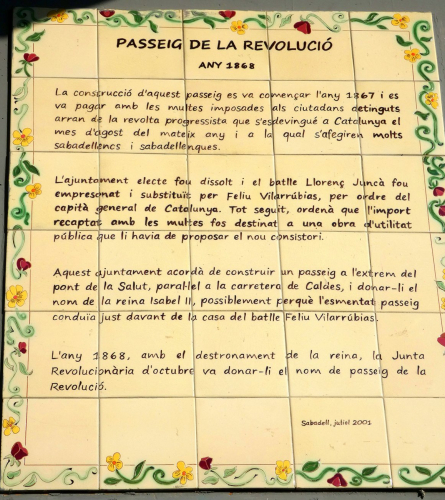 PASSEIG DE LA REVOLUCIÓ
ANY 1868
La construcció d'aquest passeig es va començar l'any 1867 i es
va pagar amb les multes imposades als ciutadans detinguts
arran de la revolta progressista que s'esdevingué a Catalunya el
mes d'agost del mateix any i a la qual s'afegiren molts
sabadellencs i sabadellenques.
L'ajuntament electe fou dissolt i el batlle Llorenç Juncà fou
empresonat i substituït per Feliu Vilarrúbias, per ordre del
capità general de Catalunya. Tot seguit, ordenà que l'import
recaptat amb les multes fos destinat a una obra d'utilitat
pública que li havia de proposar el nou consistori.
Aquest ajuntament acordà de construir un passeig a l'extrem del
pont de la Salut, paral·lel a la carretera de Caldes, i donar-li el
nom de la reina Isabel II, possiblement perquè l'esmentat passeig
conduïa just davant de la casa del batlle Feliu Vilarrúbias.
L'any 1868, amb el destronament de la reina, la Junta
Revolucionària d'octubre va donar-li el nom de passeig de la
Revolució.
Sabadell, juliol 2001